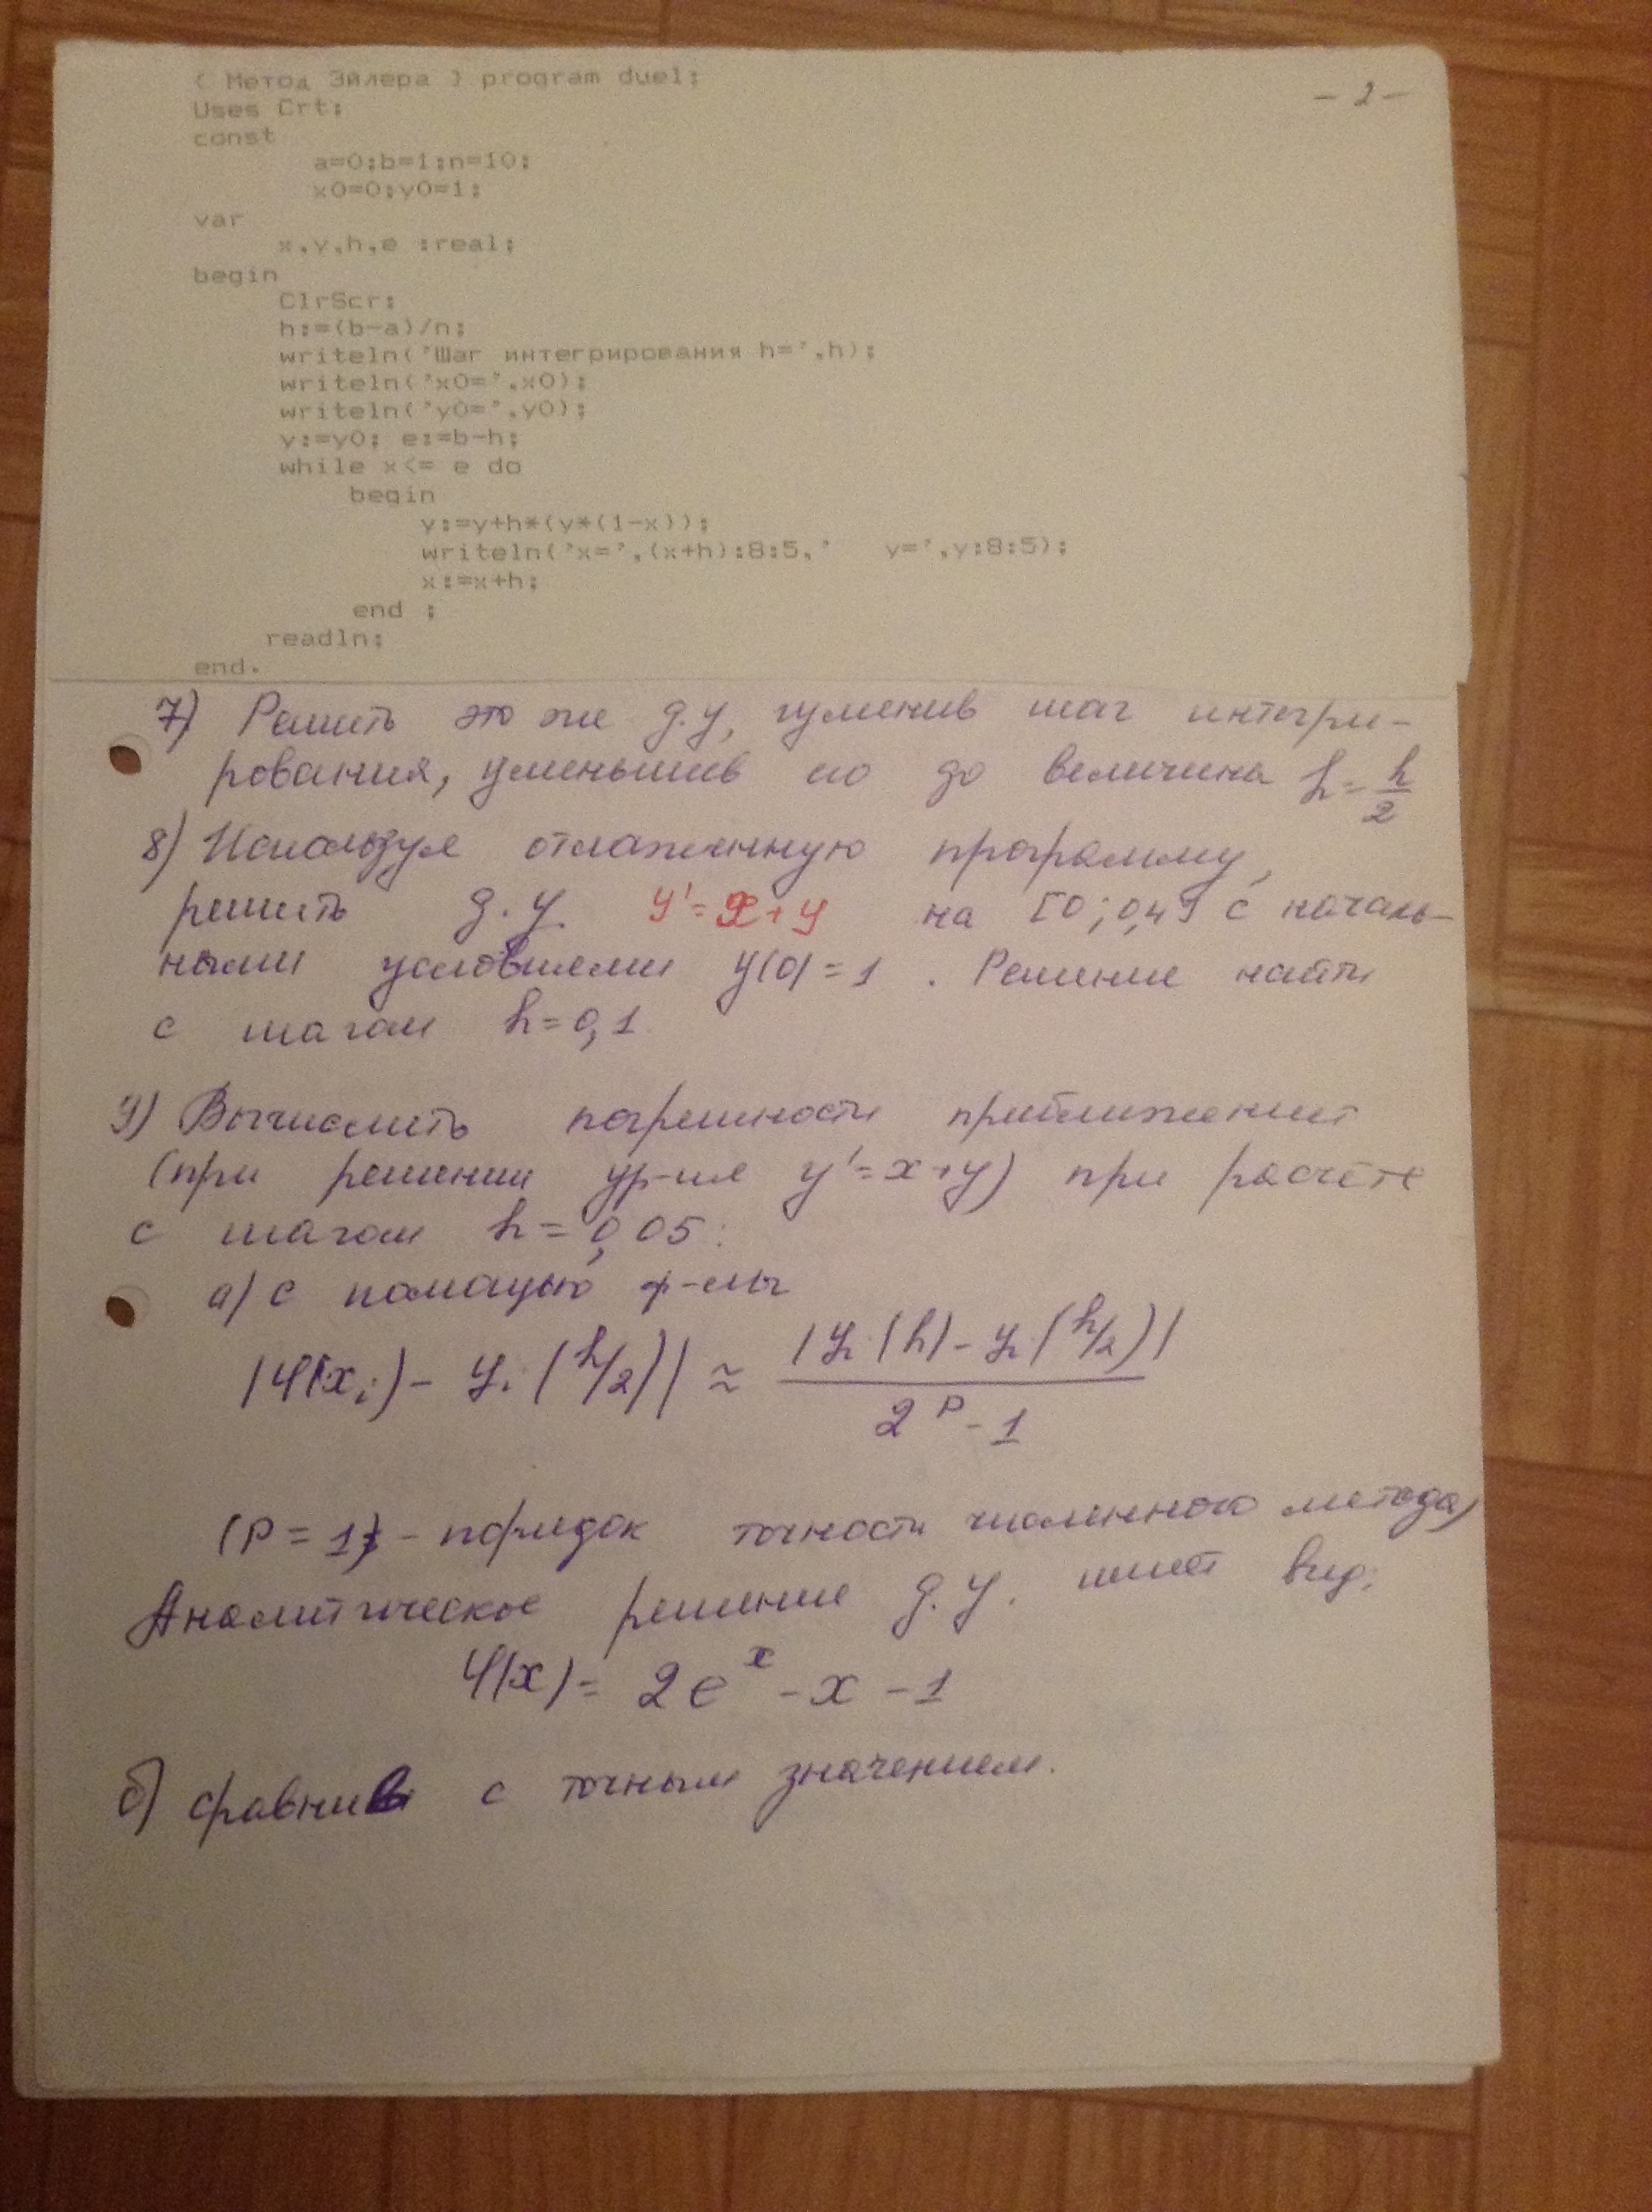 { Метод Эйлера } program duel;
- 2 -
Uses Crt;
const
a=0;b=1;n=10;
x0=0;y0=1;
var
x,y,h,e :real;
begin
ClrScr;
h:=(b-a)/n;
writeln('Шаг интегрирования h=',h);
writeln('x0=',x0);
writeln('y0=',y0);
y:=y0; e:=b-h;
while x<= e do
begin
y:=y+h*(y*(1-x));
writeln('x=',(x+h):8:5,' y=',y:8:5);
x:=x+h;
end ;
readln;
end.
7) Решить это же д.у, изменив шаг интегри-
рования, уменьшив его до величины h=h/2
8) Используя отлаженную программу,
решить д.у. y'=x+y на [0;0,4] с началь-
ными условиями y(0)=1. Решение найти
с шагом h=0,1
9) Вычислить погрешности приближения
(при решении ур-ия y'=x+y) при расчёте
с шагом h=0,05:
а) с помощью ф-лы
|φ(xi) - yi(h/2)| ≈ |yi(h) - yi(h/2)| / (2^p - 1)
(P=1) - порядок точности численного метода)
Аналитическое решение д.у. имеет вид:
φ(x)= 2e^x - x - 1
б) сравнив с точным значением.